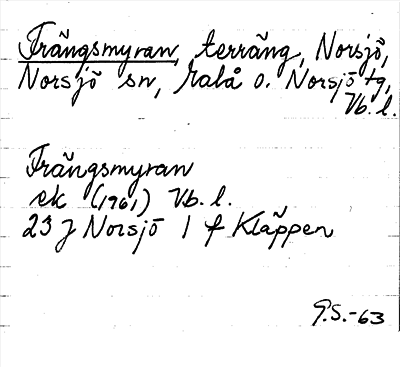 Trängsmyran, terräng, Norsjö,
Norsjö sn, Malå o. Norsjö tg,
Vb. l.
Trängsmyran
ek (1961) Vb. l.
23 J Norsjö 1 f Kläppen
G.S.-63